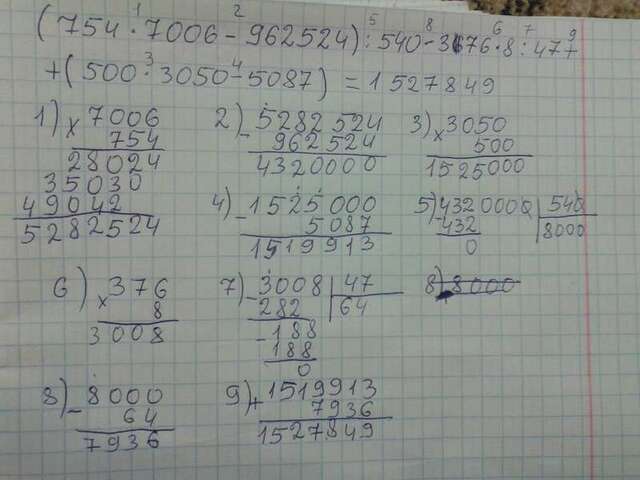 (754·7006-962524):540-376·8:47+
+(500·3050-5087)=1527849
1) × 7006
754
28024
35030
49042
5282524
2) - 5282524
962524
4320000
3) × 3050
500
1525000
4) - 1525000
5087
1519913
5) 4320000 540
432 8000
0
6) × 376
8
3008
7) - 3008 47
282 64
- 188
188
0
8) 8000
8) - 8000
64
7936
9) + 1519913
7936
1527849